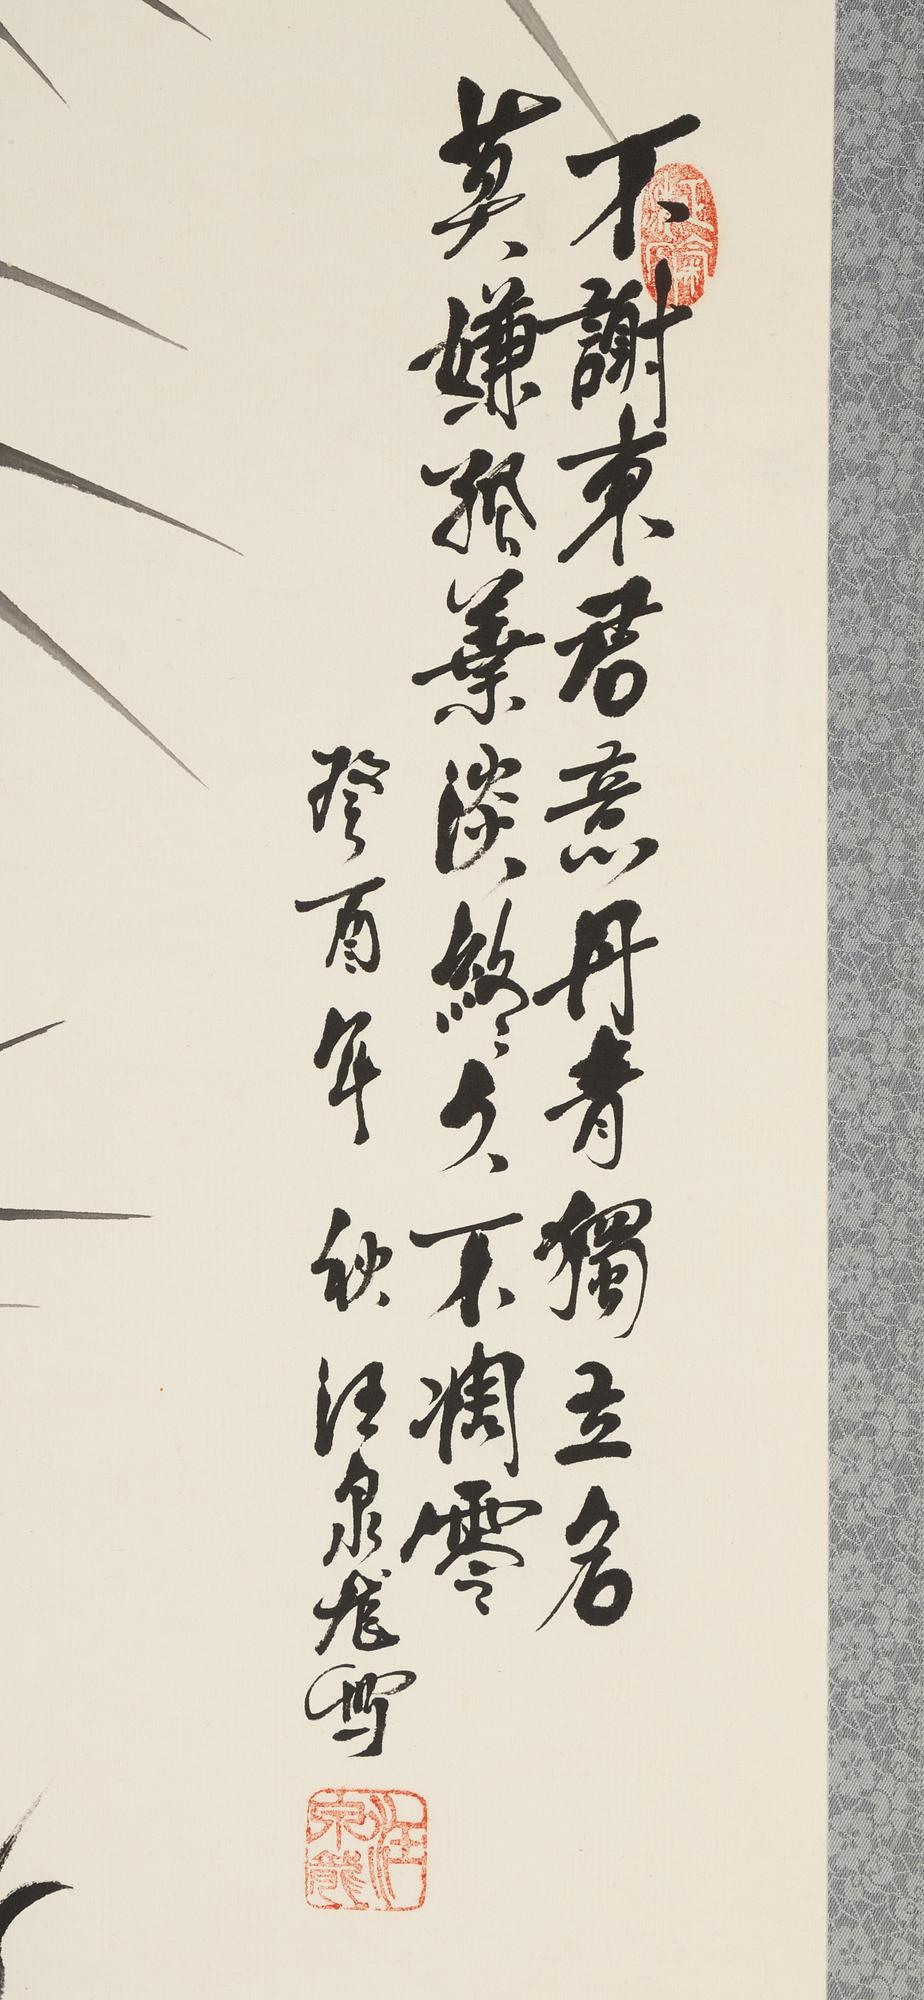 不謝東君意丹青獨立名
莫嫌孤葉淡終久不凋零
癸酉年秋汪泉龍寫